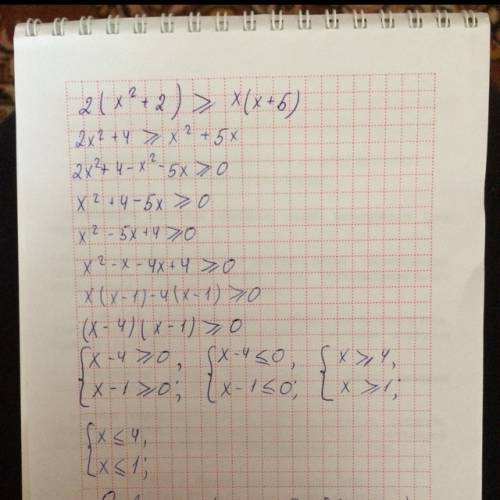 2(x²+2) ⩾ x(x+5)
2x²+4 ⩾ x²+5x
2x²+4-x²-5x ⩾ 0
x²+4-5x ⩾ 0
x²-5x+4 ⩾ 0
x²-x-4x+4 ⩾ 0
x(x-1)-4(x-1) ⩾ 0
(x-4)(x-1) ⩾ 0
{x-4 ⩾ 0, {x-4 ⩽ 0, {x ⩾ 4,
{x-1 ⩾ 0; {x-1 ⩽ 0; {x ⩾ 1;
{x ⩽ 4,
{x ⩽ 1;